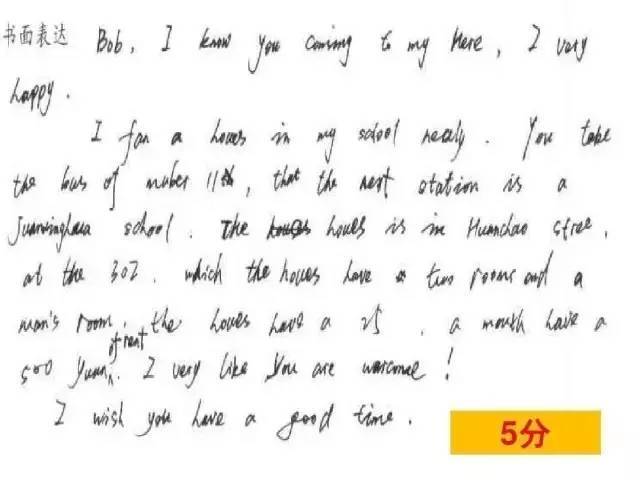 书面表达 Bob, I know you coming to my here, I very
happy.
I fan a houes in my school nearly. You take
the bus of nuber 11th, that the next station is a
school. The houes is in Huanchao stree,
at the 302. which the houes have a two rooms and a
man's room, the houes have a 25, a mouth have a
500 yuan of rent. I very like you are warcome!
I wish you have a good time.
5分